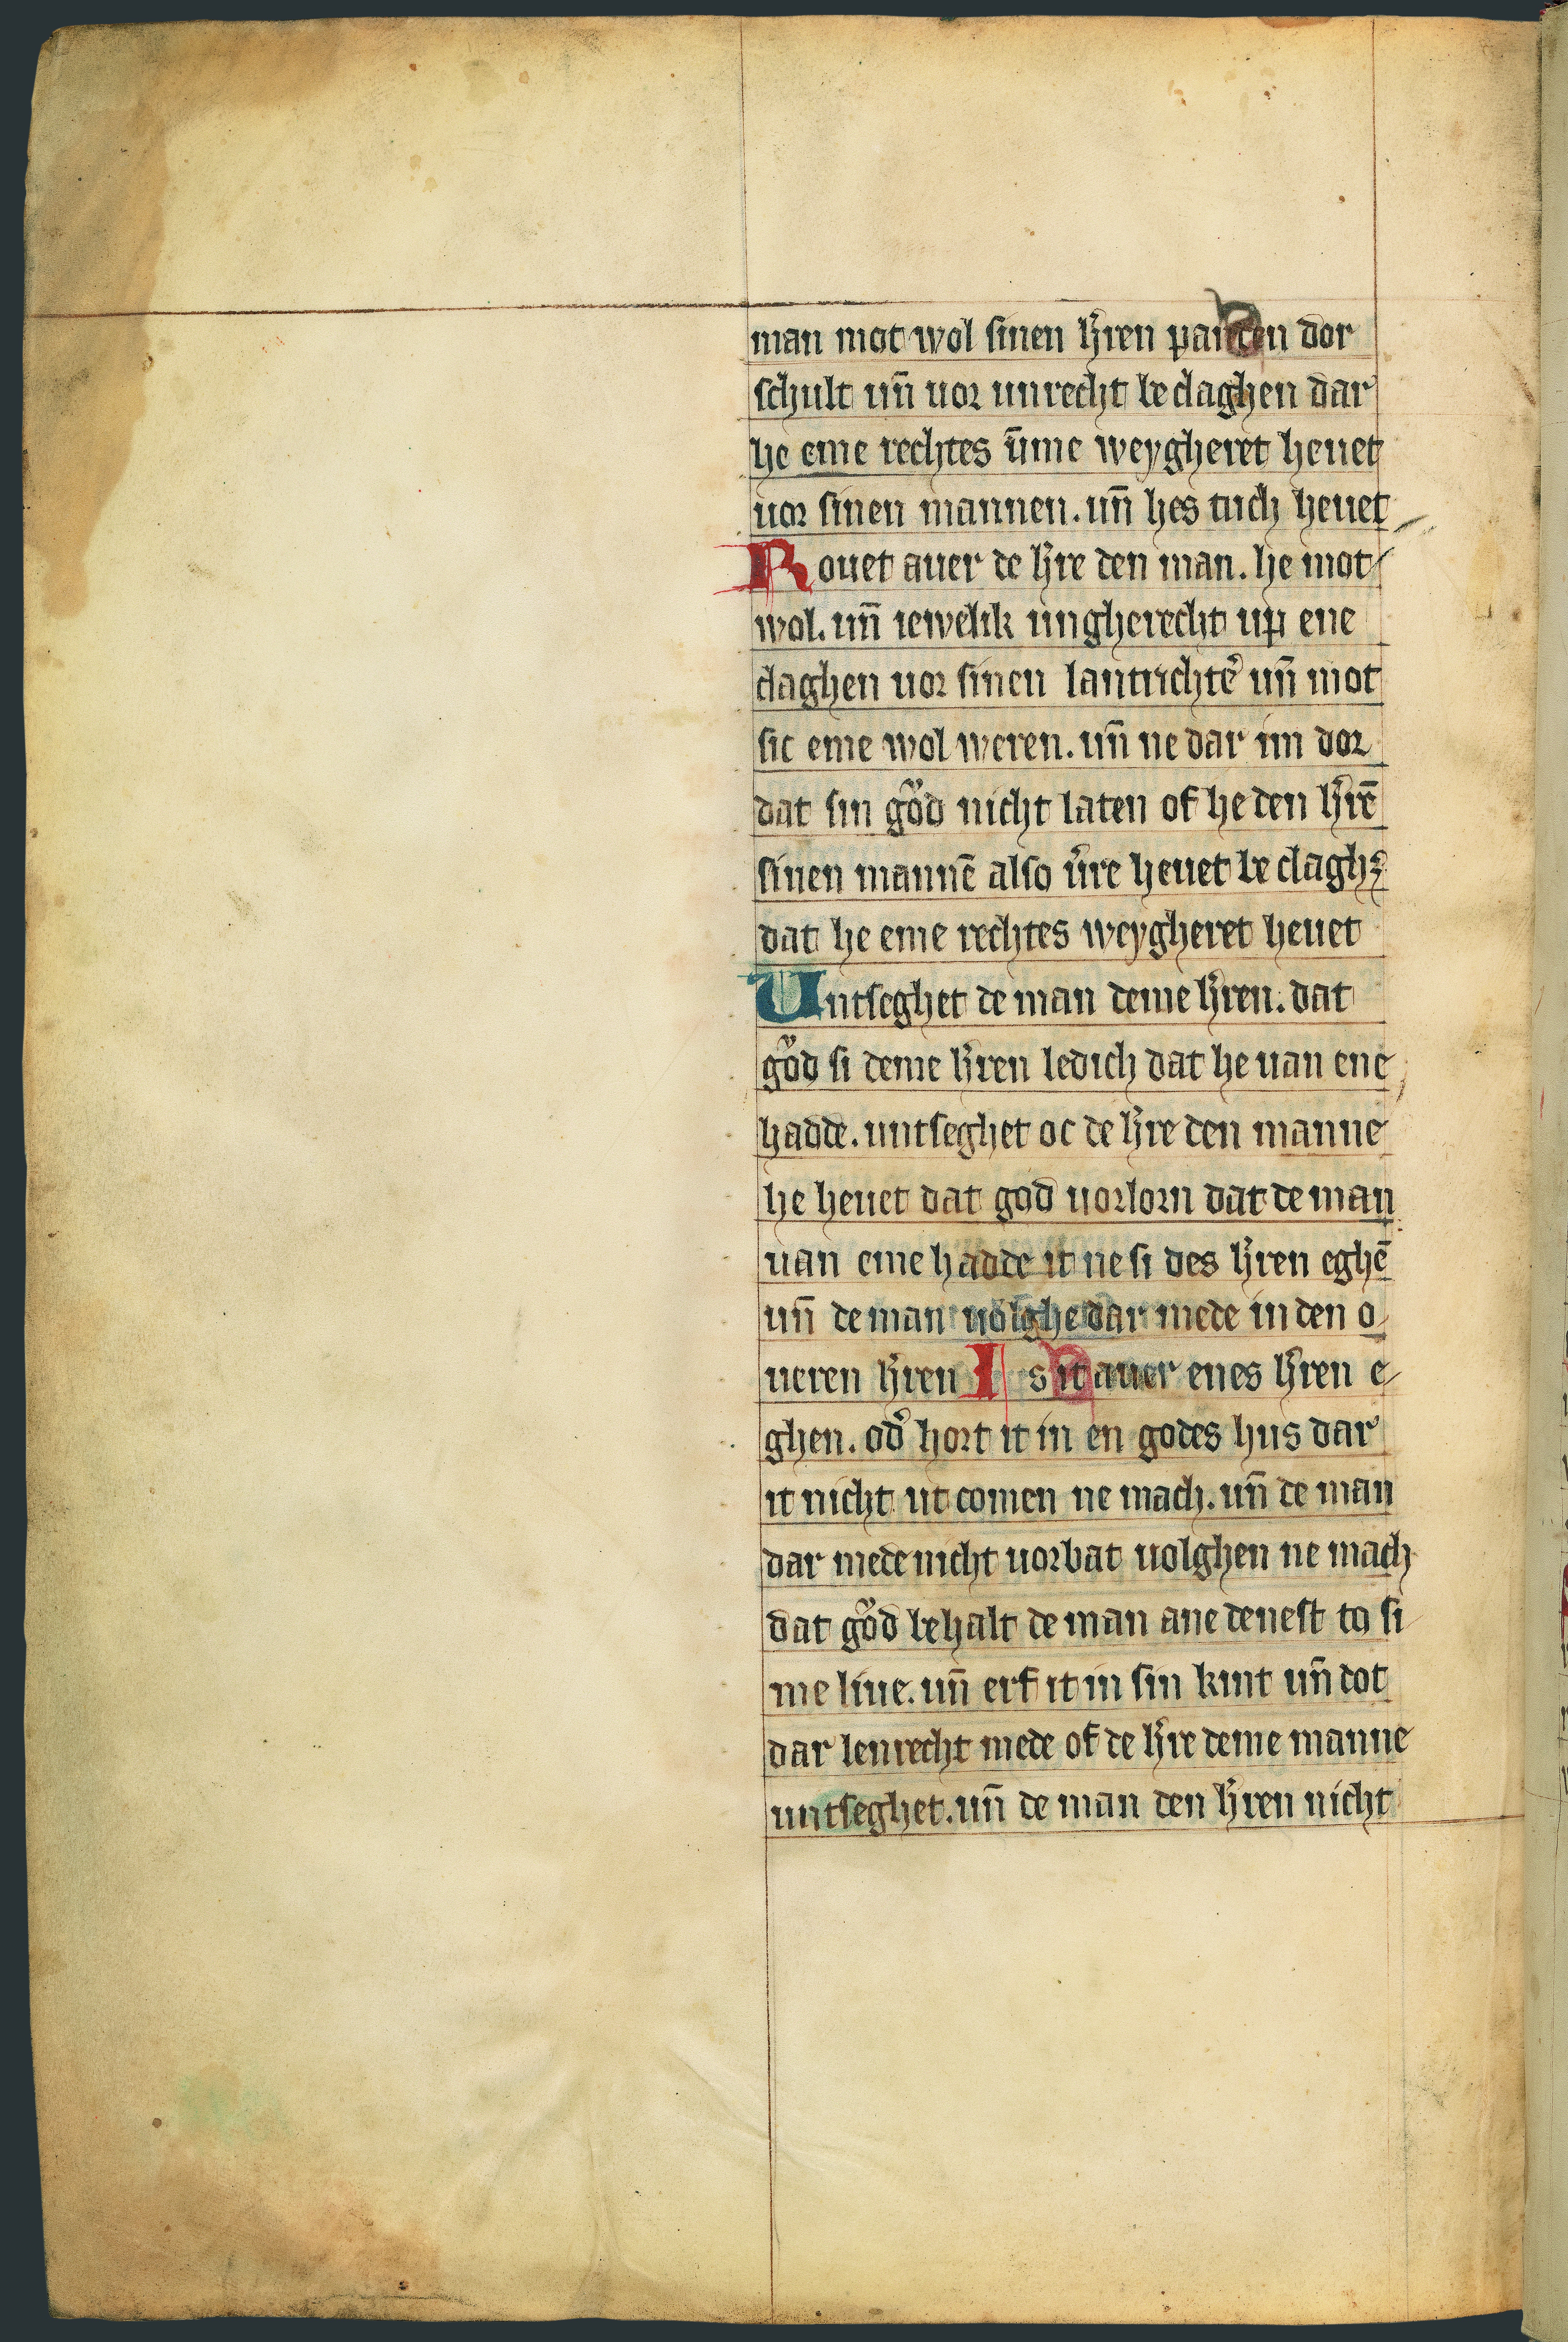 man mot wol sinen h̄ren panden dor
schult un̄ uor unrecht beclaghen dar
he eme rechtes ūme weygheret heuet
uor sinen mannen. un̄ hes tuch heuet
Rouet auer de h̄re den man. he mot
wol. un̄ iewelik ungherecht up ene
claghen uor sinen lantrichtē un̄ mot
sic eme wol weren. un̄ ne dar im dor
dat sin goͮd nicht laten of he den h̄rē
sinen mannē also ūre heuet be clagh
dat he eme rechtes weygheret heuet
Untseghet de man deme h̄ren. dat
goͮd si deme h̄ren ledich dat he uan ene
hadde. untseghet oc de h̄re den manne
he heuet dat god uorlorn dat de man
uan eme hadde it ne si des h̄ren eghē
un̄ de man uolghe dar mede in den o
ueren h̄ren Is it auer enes h̄ren e
ghen. od̄ hort it in en godes hus dar
it nicht ut comen ne mach. un̄ de man
dar mede nicht uorbat uolghen ne mach
dat goͮd behalt de man ane denest to si
me liue. un̄ erf it in sin kint un̄ dot
dar lenrecht mede of de h̄re deme manne
untseghet. un̄ de man den h̄ren nicht